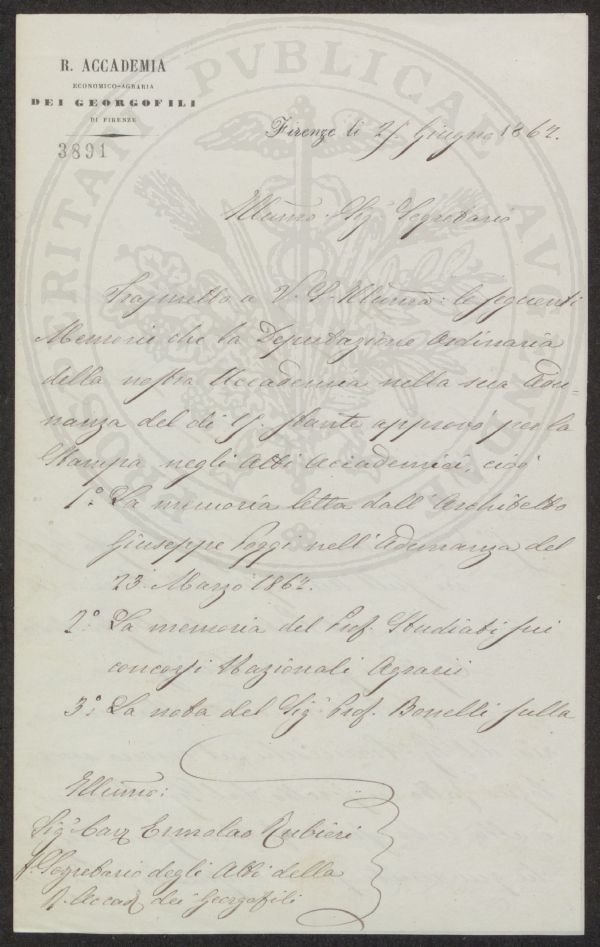 R. ACCADEMIA
ECONOMICO-AGRARIA
DEI GEORGOFILI
DI FIRENZE
3891
Firenze li Giugno 1862.
Illumo Sigr Segretario
Trasmetto a V. S. Illuma: le seguenti
Memorie che la Deputazione Ordinaria
della nostra Accademia nella sua Adu=
nanza del dì stante approvò per la
Stampa negli Atti Accademici, cioè
1.° La memoria letta dall' Architetto
Giuseppe Poggi nell' Adunanza del
23. Marzo 1862.
2.° La memoria del Prof. Studiati sui
concorsi Nazionali Agrarii
3.° La nota del Sigr Prof. Bonelli sulla
Illumo:
Sigr Cavr Ermolao Rubieri
Segretario degli Atti della
R. Accad dei Georgofili
PROSPERITATI PUBLICAE AUGENDAE